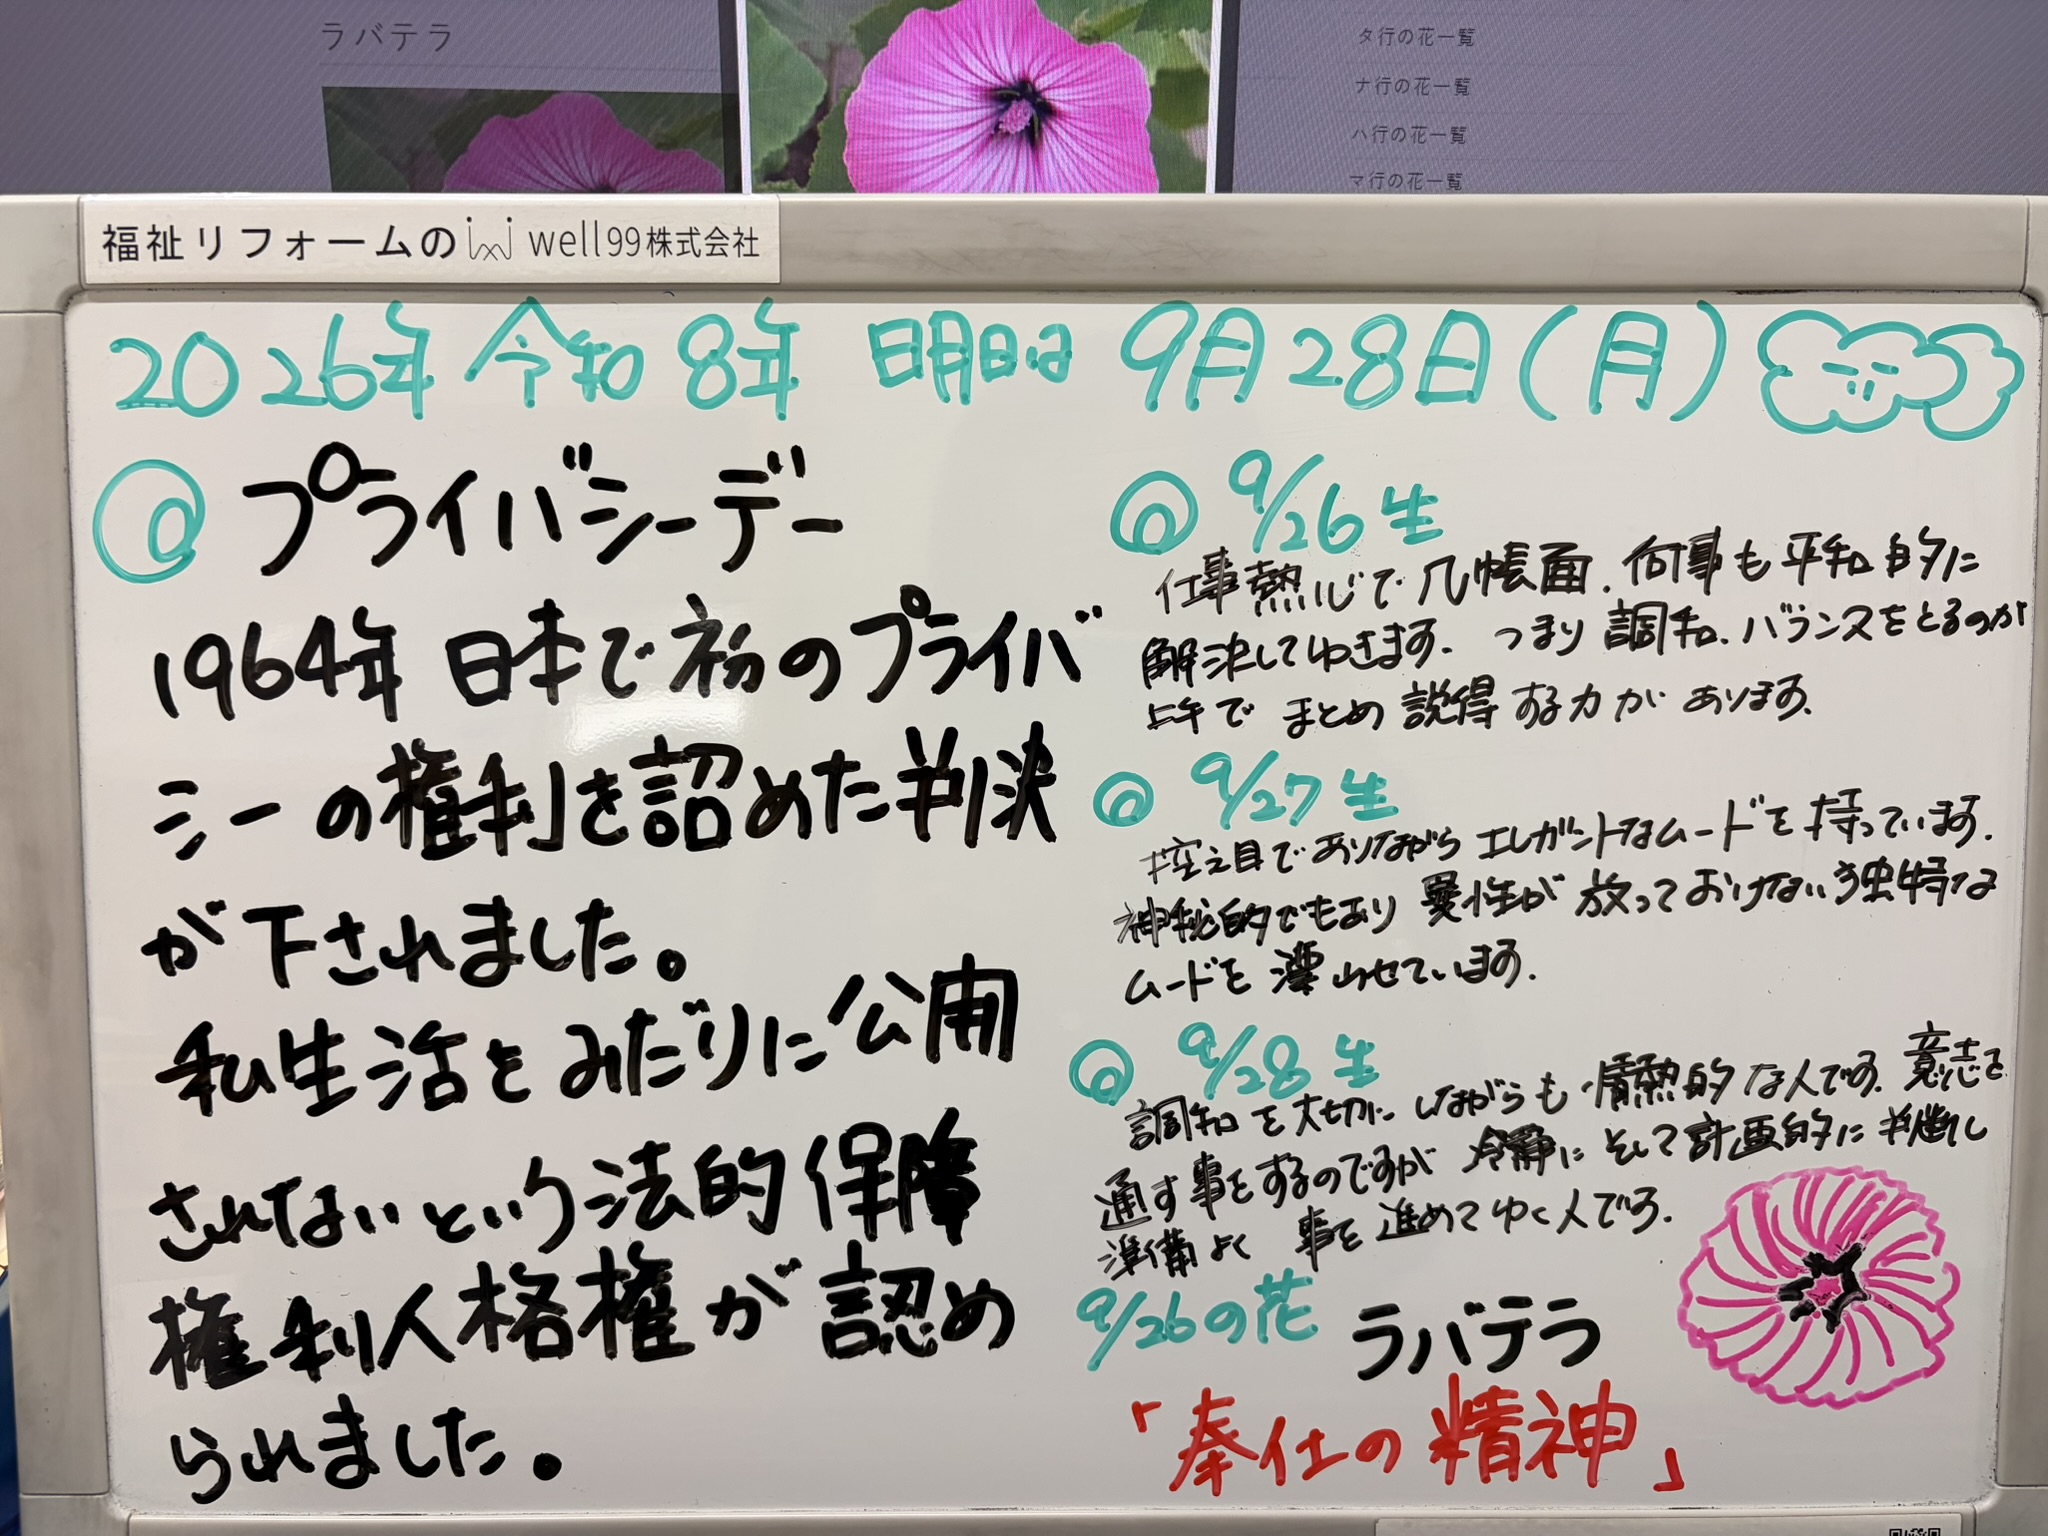 ラバテラ
タ行の花一覧
ナ行の花一覧
ハ行の花一覧
マ行の花一覧
福祉リフォームの well99株式会社
2026年 令和8年 明日は 9月28日(月)
◎ プライバシーデー
1964年 日本で初のプライバ
シーの権利を認めた判決
が下されました。
私生活をみだりに公開
されないという法的保障
権利人格権が認め
られました。
◎ 9/26生
仕事熱心で几帳面、何事も平和的に
解決してゆきます。つまり調和、バランスをとるのが
上手で まとめ説得する力があります。
◎ 9/27生
控え目でありながらエレガントなムードを持っています。
神秘的でもあり異性が放っておけない独特な
ムードを漂わせています。
◎ 9/28生
調和を大切にしながらも情熱的な人です。意志を
通す事をするのですが冷静にそして計画的に判断し
準備よく 事を進めてゆく人です。
9/26の花 ラバテラ
「奉仕の精神」